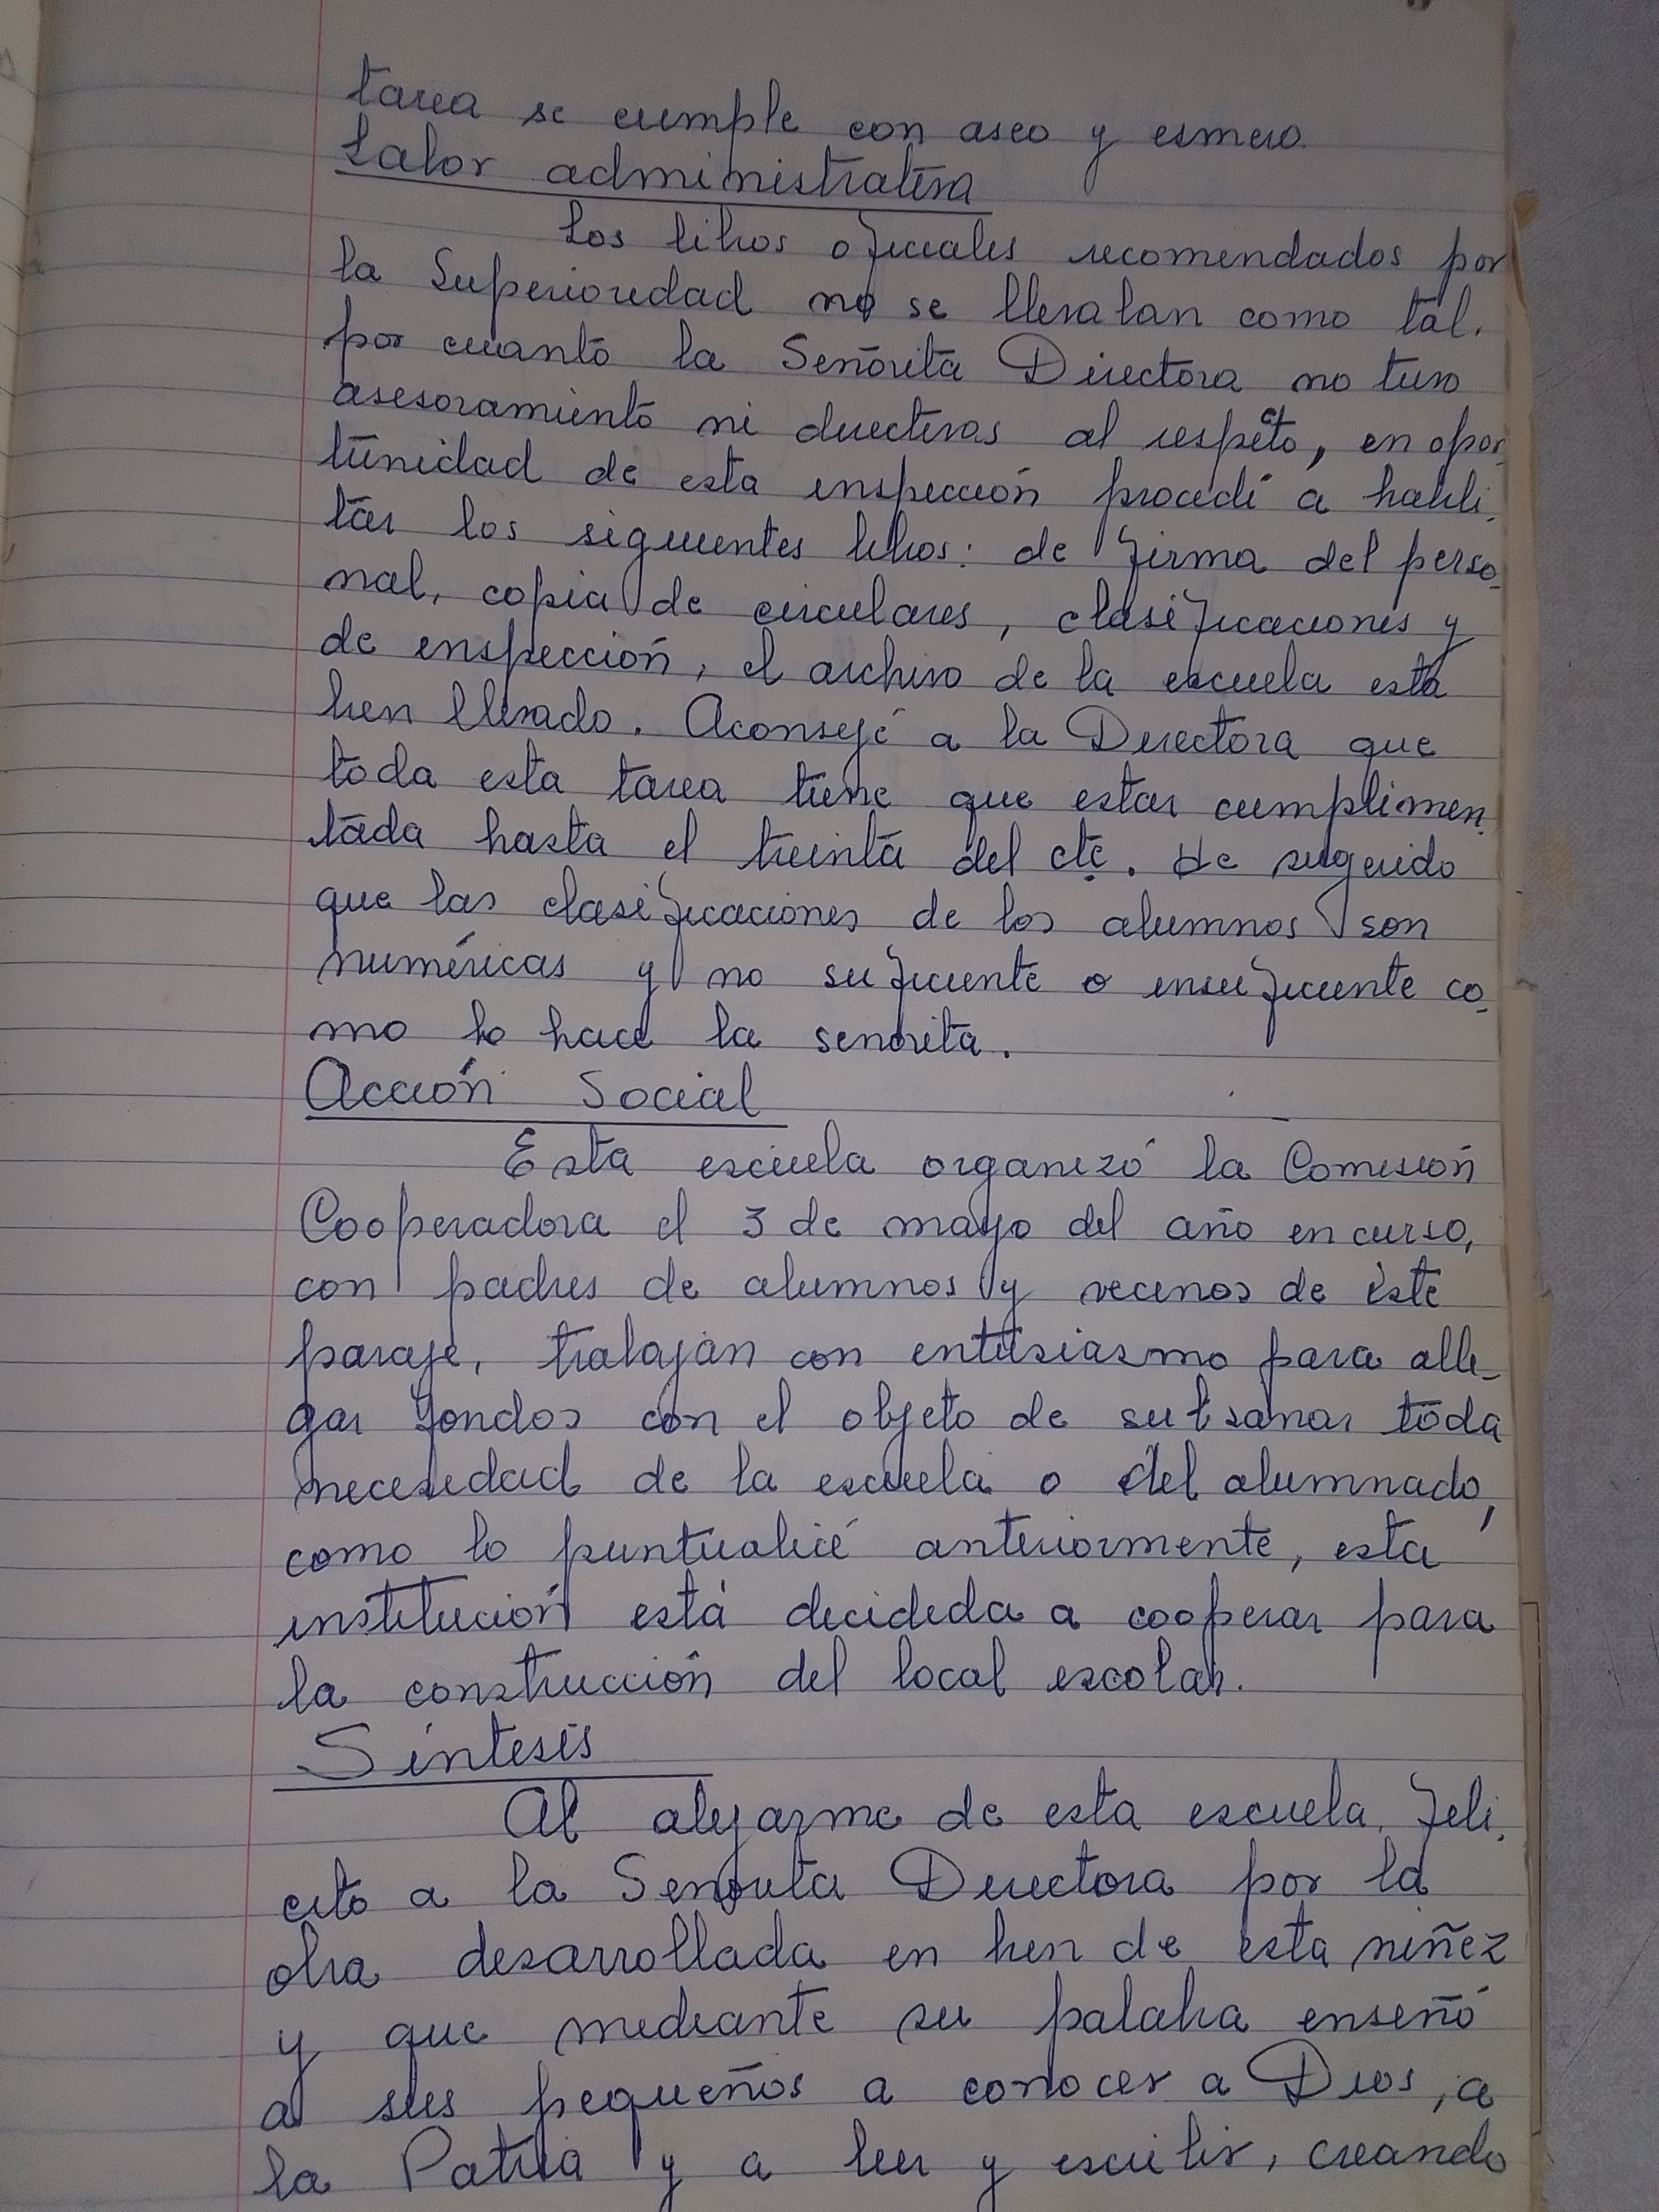 tarea se cumple con aseo y esmero.
Labor administrativa
Los libros oficiales recomendados por
la Superioridad no se llevaban como tal.
por cuanto la Señorita Directora no tuvo
asesoramiento ni directivas al respecto, en opor-
tunidad de esta inspección procedí a habili-
tar los siguientes libros: de firma del perso-
nal, copia de circulares, clasificaciones y
de inspección, el archivo de la escuela está
bien llevado. Aconsejé a la Directora que
toda esta tarea tiene que estar cumplimen-
tada hasta el treinta del cte. He sugerido
que las clasificaciones de los alumnos son
numéricas y no suficiente o insuficiente co-
mo lo hace la señorita.
Acción Social
Esta escuela organizó la Comisión
Cooperadora el 3 de mayo del año en curso,
con padres de alumnos y vecinos de éste
paraje, trabajan con entusiasmo para alle-
gar fondos con el objeto de subsanar toda
necesidad de la escuela o del alumnado,
como lo puntualicé anteriormente, esta
institución está decidida a cooperar para
la construcción del local escolar.
Síntesis
Al alejarme de esta escuela, feli-
cito a la Señorita Directora por la
obra desarrollada en bien de esta niñez
y que mediante su palabra enseñó
a sus pequeños a conocer a Dios, a
la Patria y a leer y escribir, creando